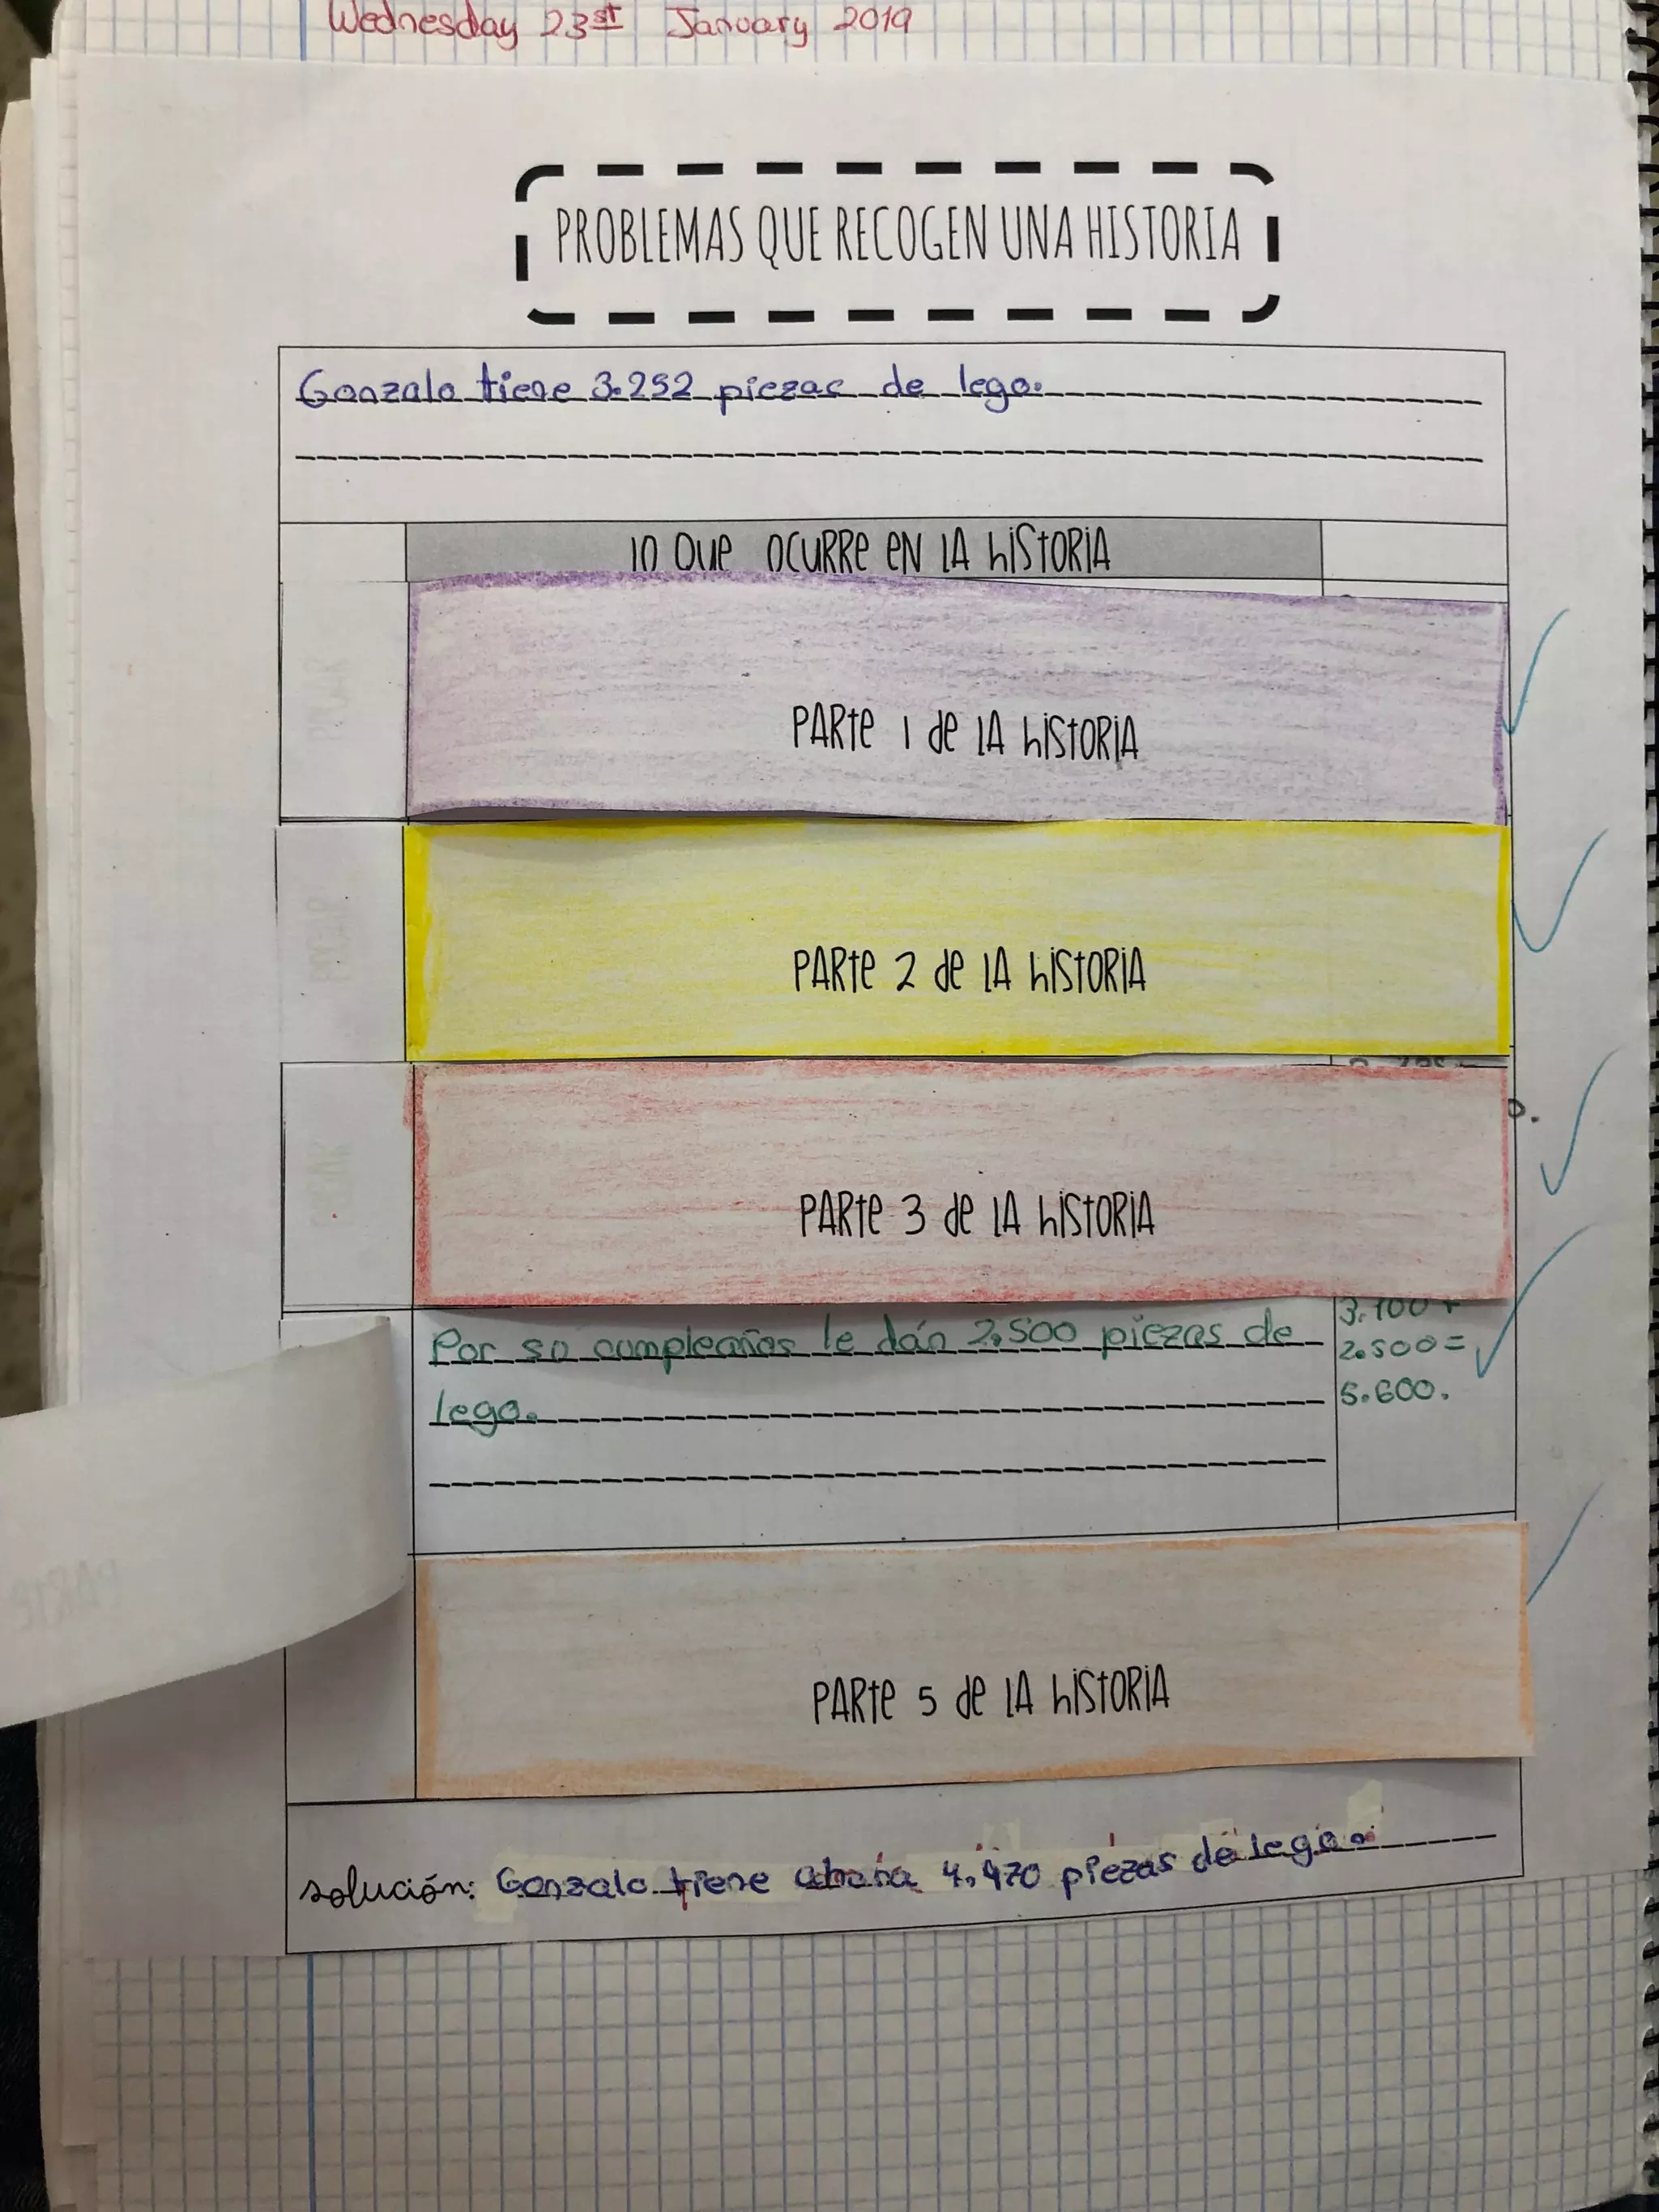 Wednesday 23st January 2019
PROBLEMAS QUE RECOGEN UNA HISTORIA
Gonzalo tiene 3.252 piezas de lego.
LO QUE OCURRE EN LA HISTORIA
PARTE 1 de LA HISTORIA
PARTE 2 de LA HISTORIA
PARTE 3 de LA HISTORIA
Por su cumpleaños le dán 2.500 piezas de
lego.
3.100+
2.500=
5.600.
PARTE 5 de LA HISTORIA
solución: Gonzalo tiene ahora 4.470 piezas de lego.